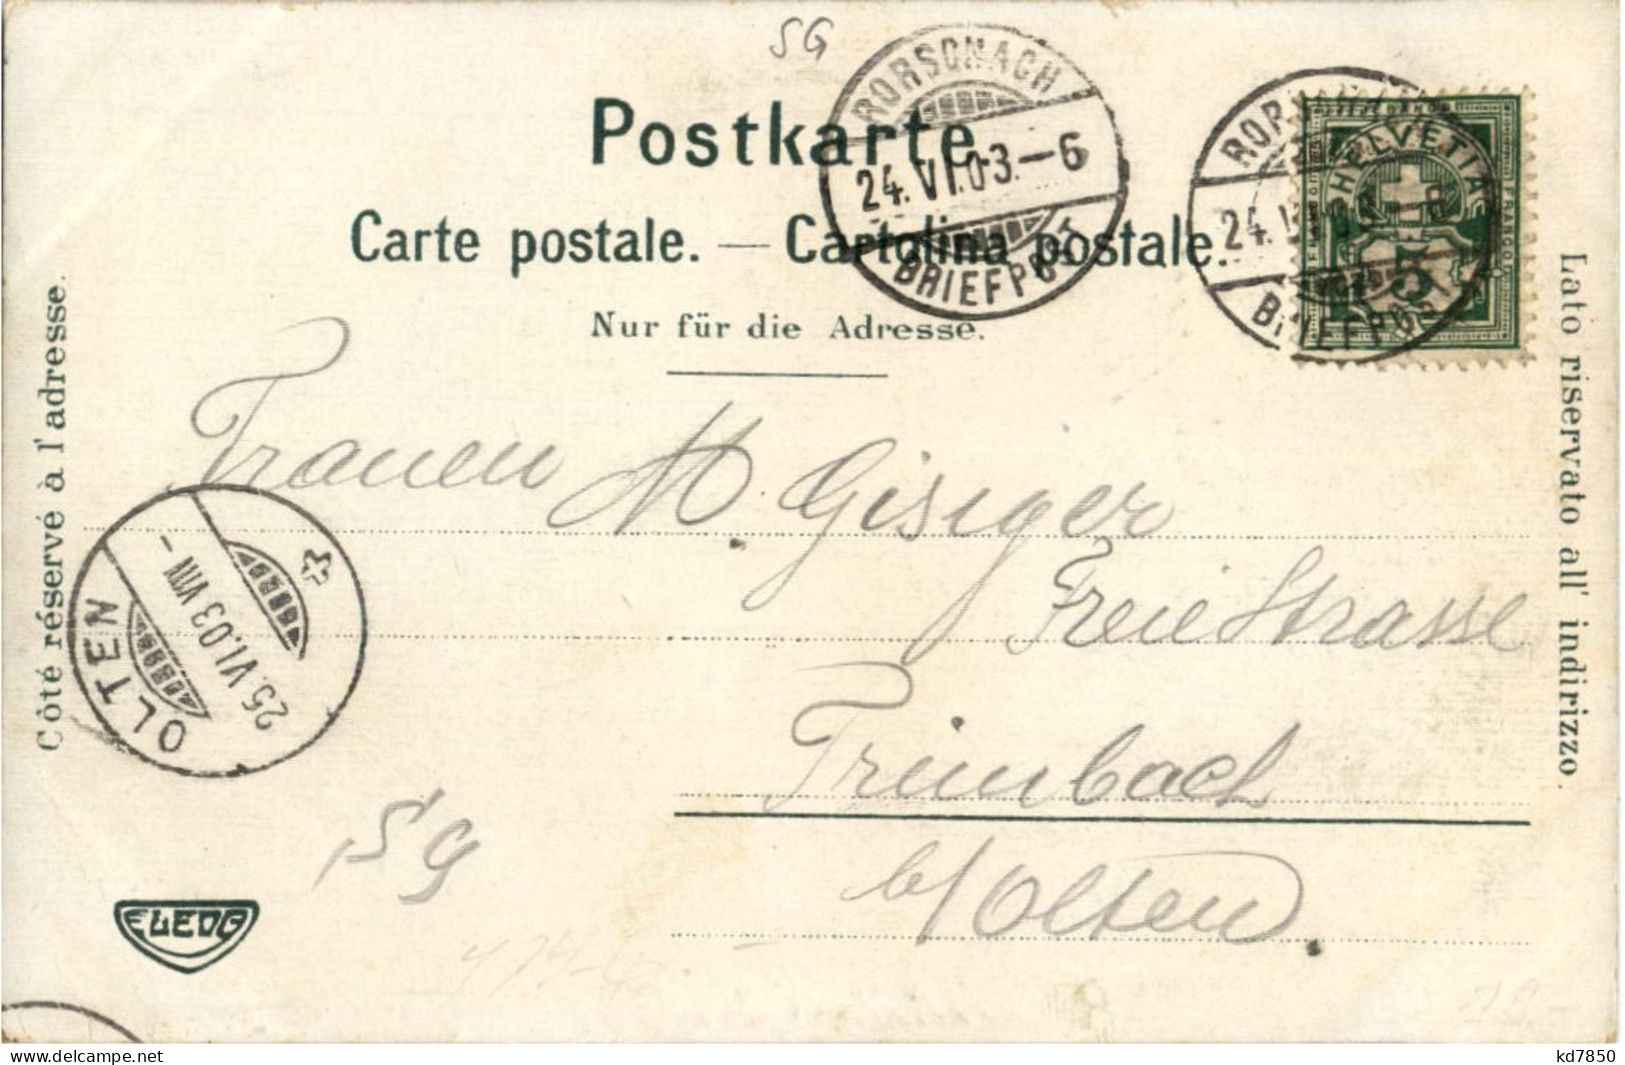 SG
RORSCHACH
24. VI. 03. – 6
BRIEFPOST
24.
HELVETIA
FRANCO
5
Postkarte.
Carte postale. — Cartolina postale.
Nur für die Adresse.
Côté réservé à l'adresse.
Lato riservato all' indirizzo.
Frauen M. Gisiger
Freie Strasse
Trimbach
b/Olten.
OLTEN
25. VI. 03 VIII –
SG
ELEDG
delcampe.net
kd7850